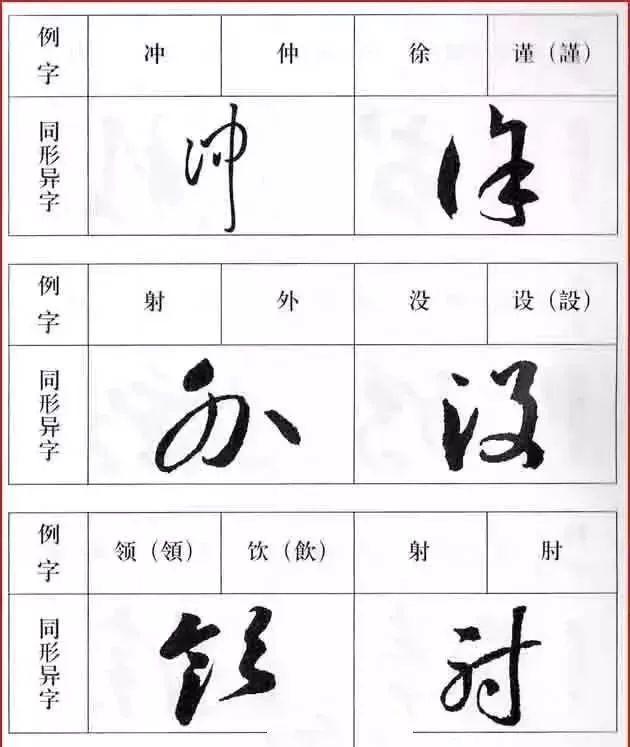 例字 冲 仲 徐 谨（謹）
同形异字
例字 射 外 没 设（設）
同形异字
例字 领（領） 饮（飲） 射 肘
同形异字